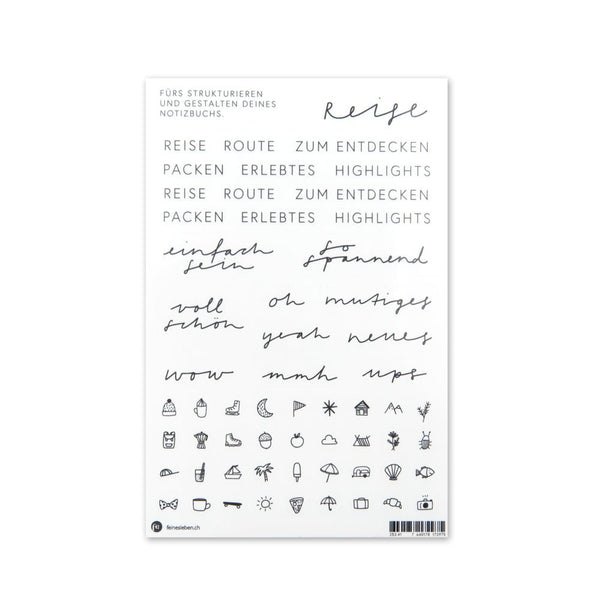 FÜRS STRUKTURIEREN
UND GESTALTEN DEINES
NOTIZBUCHS.
Reise
REISE ROUTE ZUM ENTDECKEN
PACKEN ERLEBTES HIGHLIGHTS
REISE ROUTE ZUM ENTDECKEN
PACKEN ERLEBTES HIGHLIGHTS
einfach
sein
so
spannend
voll
schön
oh mutiges
yeah neues
wow mmh ups
feinesleben.ch